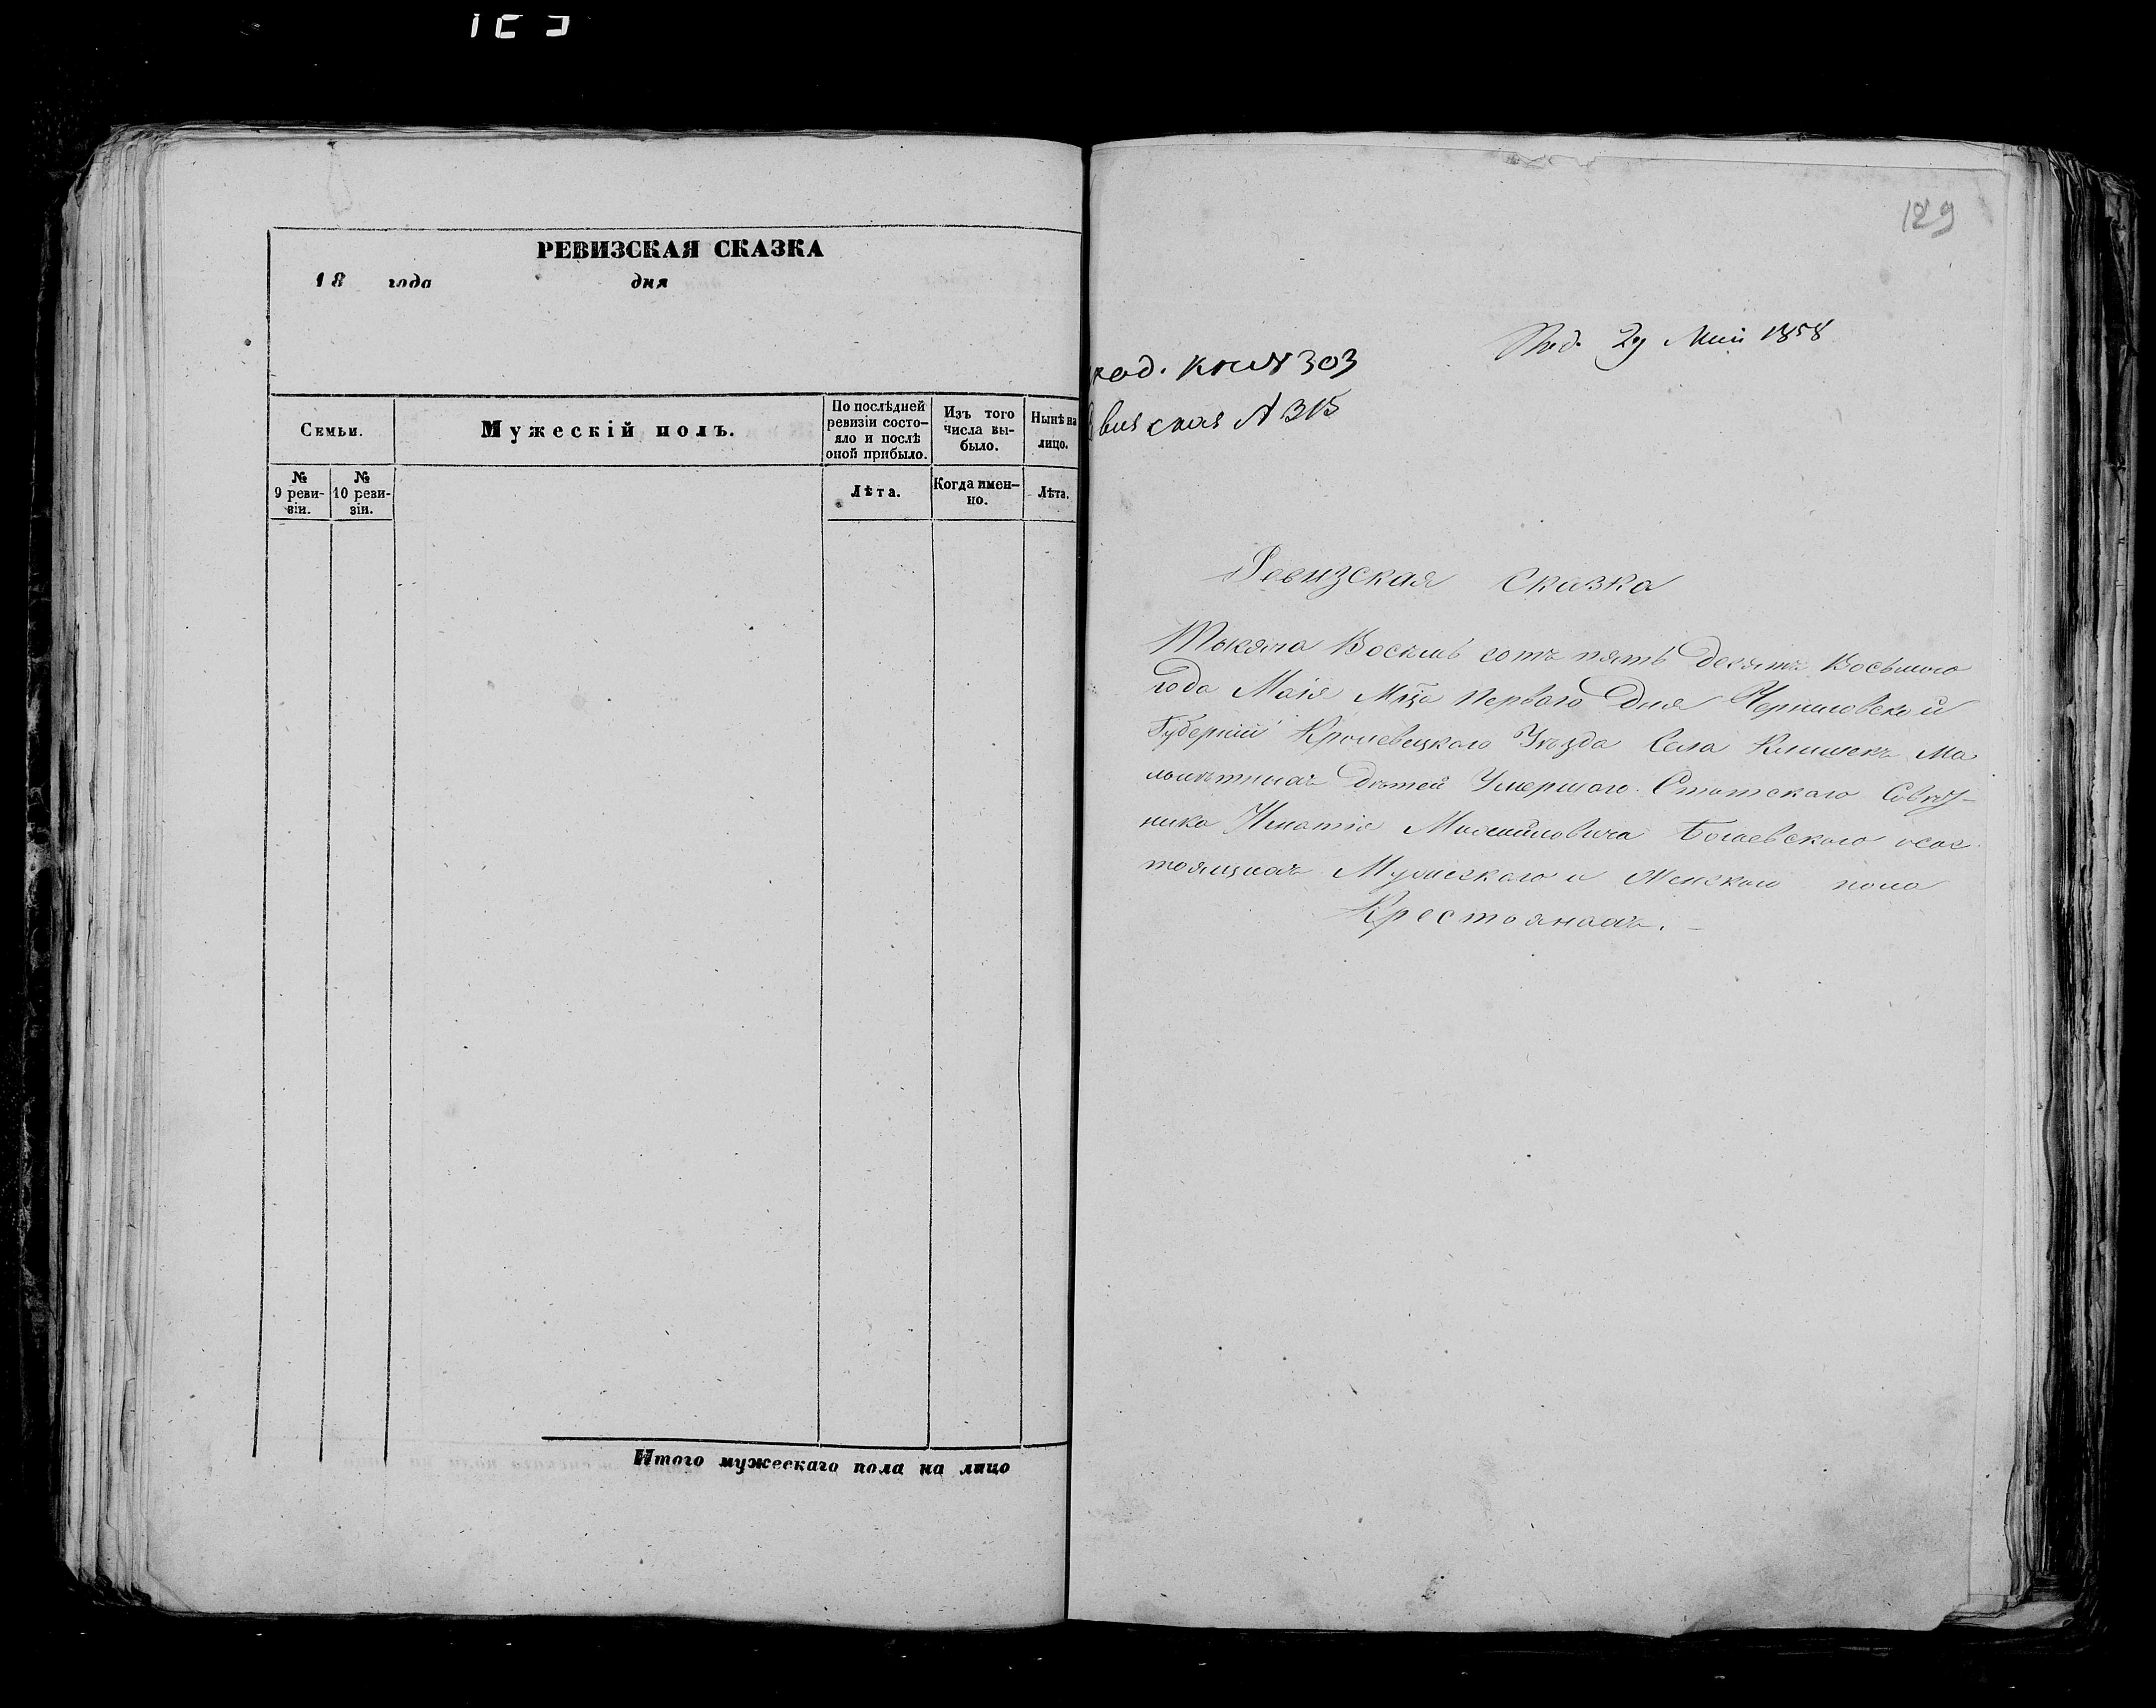 РЕВИЗСКАЯ СКАЗКА
18 года дня
Семьи.
Мужескій полъ.
По послѣдней ревизіи состо-
яло и послѣ
оной прибыло.
Изъ того
числа вы-
было.
Нынѣ на
лицо.
№
9 реви-
зіи.
№
10 реви-
зіи.
Лѣта.
Когда имен-
но.
Лѣта.
Итого мужескаго пола на лицо
129
29 Мая 1858
303
№ 315
Ревизская Сказка
Тысяча Восемь сотъ пять десятъ Восьмого
года Маія Мца Первого Дня Черниговской
Губерніи Кролевецкого Уѣзда Села Клишекъ Ма
лолѣтныхъ дѣтей Умершого Статского Совѣт-
ника Игнатія Михайловича Богаевского осос
тоящихъ Мужеского и Женского пола
Крестьянахъ.